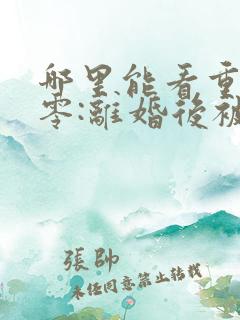 哪里能看重
零:離婚後被
張帥
未经同意禁止转载